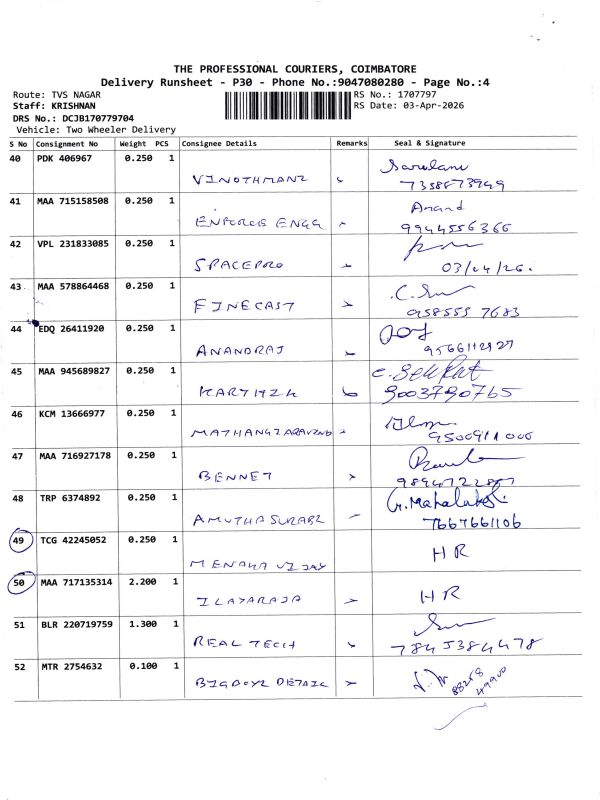 THE PROFESSIONAL COURIERS, COIMBATORE
Delivery Runsheet - P30 - Phone No.:9047080280 - Page No.:4
Route: TVS NAGAR
RS No.: 1707797
Staff: KRISHNAN
RS Date: 03-Apr-2026
DRS No.: DCJB170779704
Vehicle: Two Wheeler Delivery
S No Consignment No Weight PCS Consignee Details Remarks Seal & Signature
40 PDK 406967 0.250 1
VINOTHMANI 7358873949
41 MAA 715158508 0.250 1 Anand
ENFORCE ENGG 9944556366
42 VPL 231833085 0.250 1
SPACEPRO 03/04/26.
43 MAA 578864468 0.250 1
FINECAST 958555 7683
44 EDQ 26411920 0.250 1
ANANDRAJ 9566112927
45 MAA 945689827 0.250 1
KARTHIK 9003790765
46 KCM 13666977 0.250 1
MATHANGIARAVIND 9500911006
47 MAA 716927178 0.250 1
BENNET
48 TRP 6374892 0.250 1 G. Mahalakshmi
AMUTHASURABI 7667661106
49 TCG 42245052 0.250 1 HR
MENAKA VIJAY
50 MAA 717135314 2.200 1 HR
ILAYARAJA
51 BLR 220719759 1.300 1
REAL TECH 7845384478
52 MTR 2754632 0.100 1
BIGBOYZ DETAIL 88258 49900